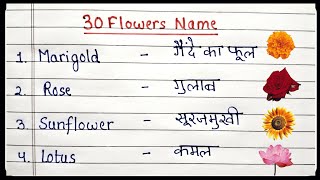 30 Flowers Name
1. Marigold - गैंदे का फूल
2. Rose - गुलाब
3. Sunflower - सूरजमुखी
4. Lotus - कमल